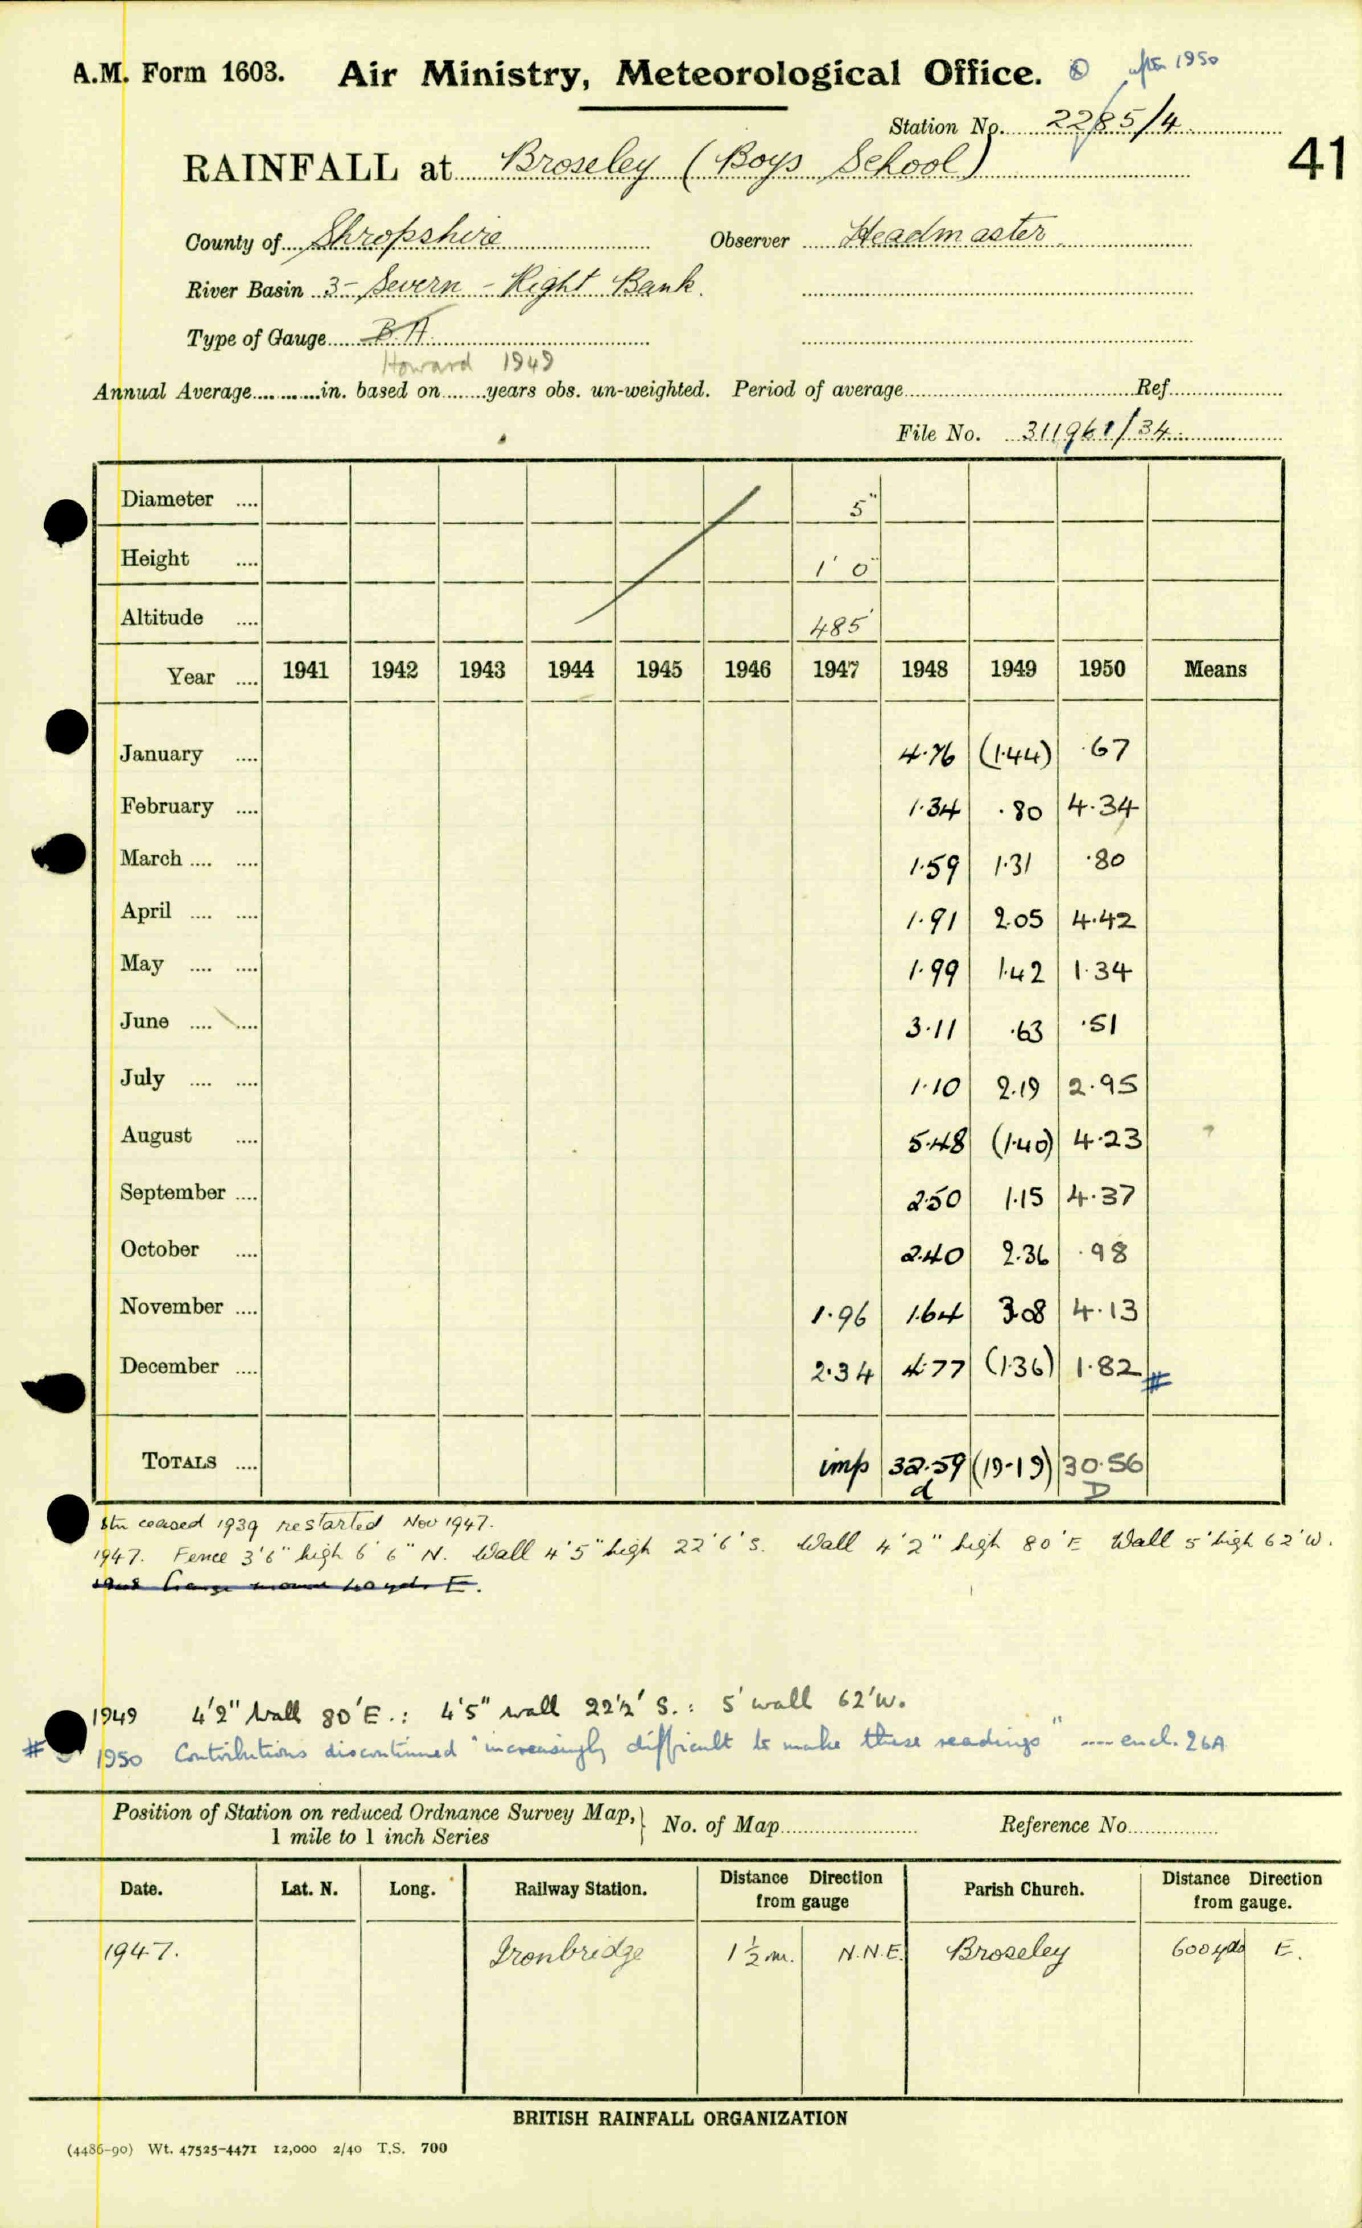 A.M. Form 1603. Air Ministry, Meteorological Office. after 1950
Station No. 2285/4
41
RAINFALL at Broseley (Boys School)
County of Shropshire Observer Headmaster
River Basin 3- Severn - Right Bank.
Type of Gauge B.A.
Howard 1949
Annual Average............in. based on........years obs. un-weighted. Period of average........Ref........
File No. 311961/34
Diameter .... 5"
Height .... 1' 0"
Altitude .... 485'
Year .... 1941 1942 1943 1944 1945 1946 1947 1948 1949 1950 Means
January .... 4.76 (1.44) .67
February .... 1.34 .80 4.34
March .... .... 1.59 1.31 .80
April .... .... 1.91 2.05 4.42
May .... .... 1.99 1.42 1.34
June .... .... 3.11 .63 .51
July .... .... 1.10 2.19 2.95
August .... 5.48 (1.40) 4.23
September .... 2.50 1.15 4.37
October .... 2.40 2.36 .98
November .... 1.96 1.64 3.08 4.13
December .... 2.34 4.77 (1.36) 1.82 #
TOTALS .... imp 32.59 (19.19) 30.56
d D
Stn ceased 1939 restarted Nov 1947.
1947. Fence 3'6" high 6'6" N. Wall 4'5" high 22'6" S. Wall 4'2" high 80'E Wall 5' high 62'W.
1949 4'2" Wall 80'E.: 4'5" wall 22½' S.: 5' wall 62'W.
# 1950 Contributions discontinued "increasingly difficult to make these readings" ---- encl. 26A
Position of Station on reduced Ordnance Survey Map, 1 mile to 1 inch Series No. of Map........ Reference No........
Date. Lat. N. Long. Railway Station. Distance Direction from gauge Parish Church. Distance Direction from gauge.
1947. Ironbridge 1½ m. N.N.E. Broseley 600 yds E.
BRITISH RAINFALL ORGANIZATION
(4486-90) Wt. 47525-4471 12,000 2/40 T.S. 700